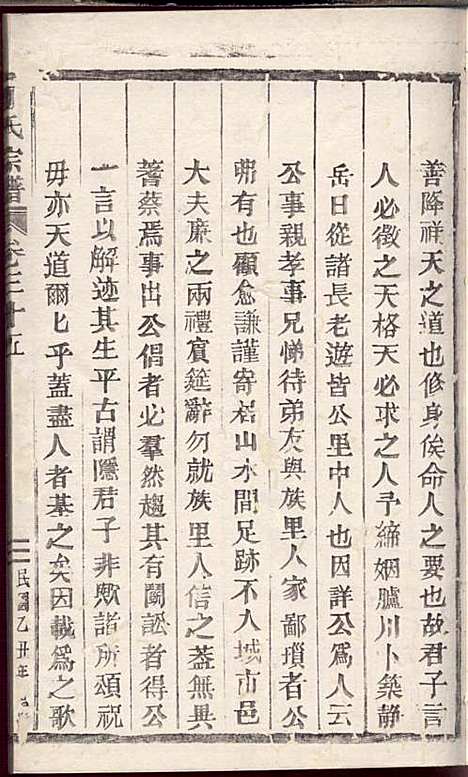 善降祥天之道也修身俟命人之要也故君子言
人必徵之天格天必求之人予締姻臚川卜築靜
岳日從諸長老遊皆公里中人也因詳公爲人云
公事親孝事兄悌待弟友與族里人家鄙瑣者公
弗有也顧愈謙謹寄居山水間足跡不入城市邑
大夫廉之兩禮賓筵辭勿就族里人信之葢無異
蓍蔡焉事出公倡者必羣然趨其有鬬訟者得公
一言以解迹其生平古謂隱君子非歟諸所頌祝
毋亦天道爾乎蓋盡人者基之矣因載爲之歌
氏宗譜 卷之二十五
民國乙丑年